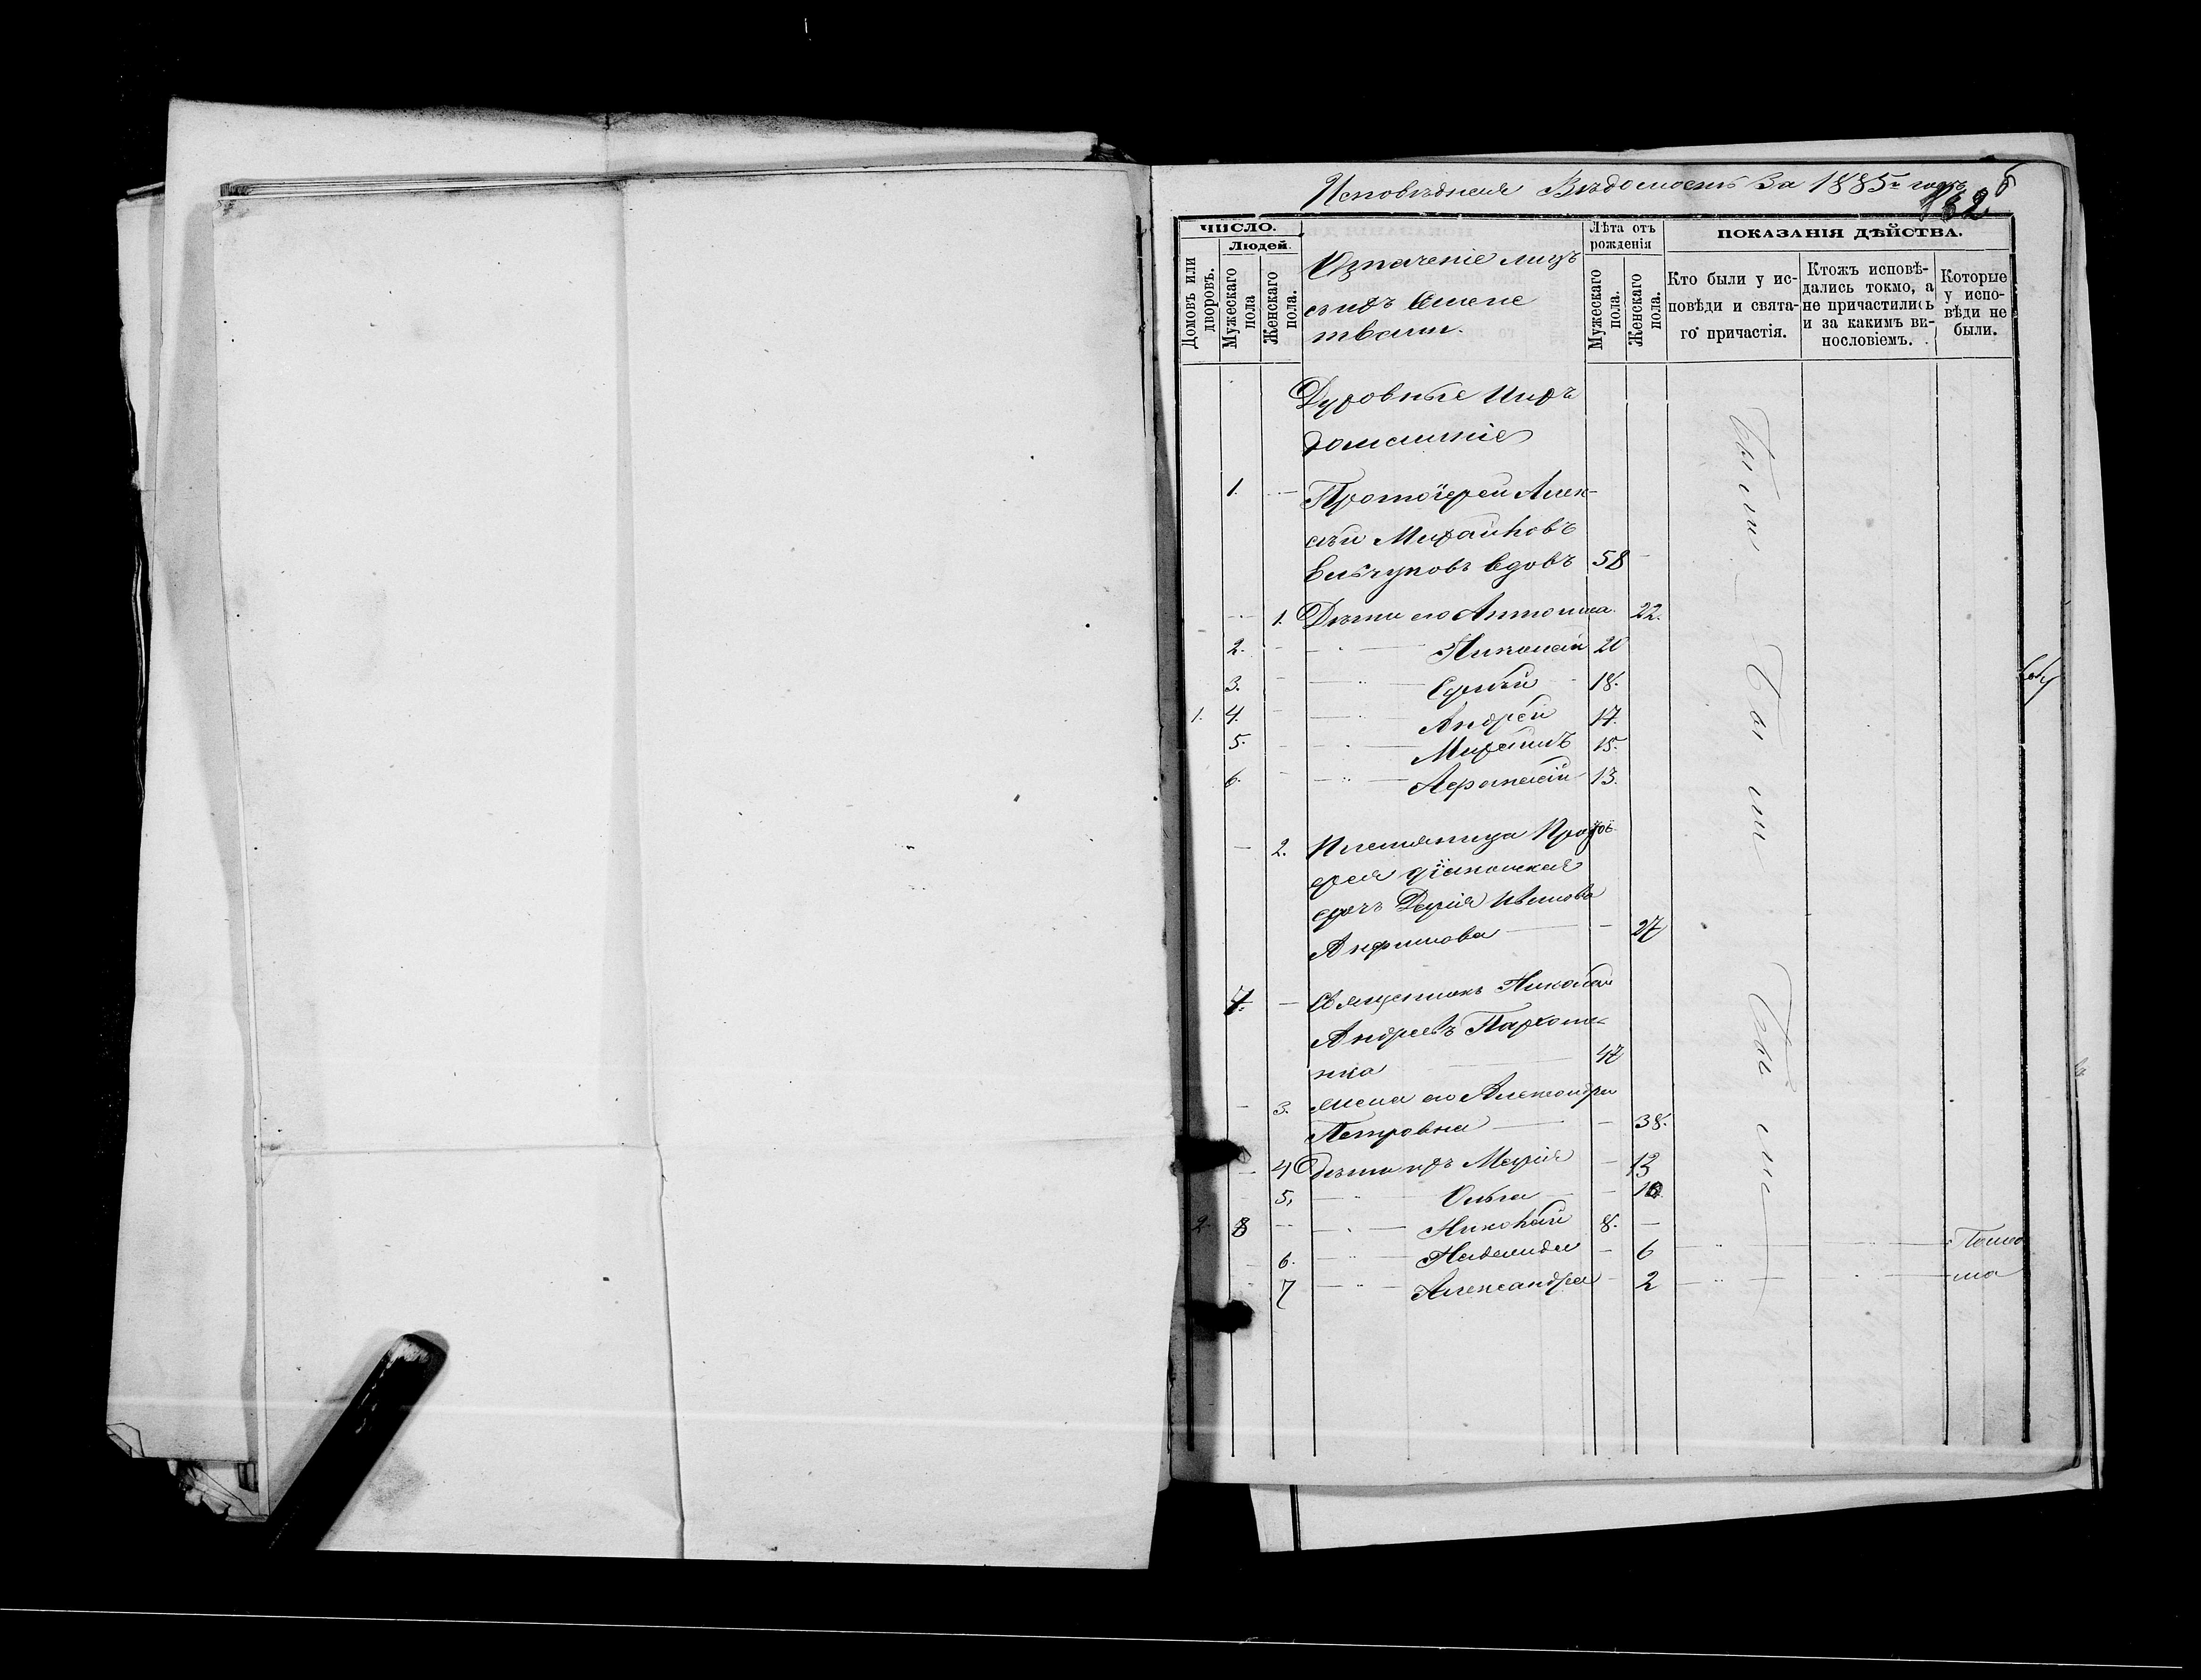 Исповѣдная Вѣдомость За 1885й годъ
132
ЧИСЛО.
Людей.
Домовъ или дворовъ.
Мужескаго пола
Женскаго пола.
Означеніе лицъ
съ ихъ Семей
ствами.
Лѣта отъ рожденія
Мужескаго пола.
Женскаго пола.
ПОКАЗАНІЯ ДѢЙСТВА.
Кто были у ис-
повѣди и свята-
го причастія.
Ктожъ исповѣ-
дались токмо, а
не причастились
и за какимъ ви-
нословіемъ.
Которые
у испо-
вѣди не
были.
Духовные ихъ
домашніе
1. — Протоіерей Алек-
сѣй Михайловъ
вдовъ 58 —
— 1. Дѣти его Антонина 22.
2. — Николай 20
3. — Сергѣй 18.
1. 4. — Андрей 17.
5. — Михаилъ 15.
6. — Афанасій 13.
— 2. Племянница Прото
ерея діаконская
дочь Дарія Иванова
— 27
7. — Священникъ Николай
Андреевъ Пархоме
нко 47
— 3. жена его Александра
Петровна — 38.
— 4 Дѣти ихъ Марія — 13
5. Ольга — 10
2. 8 — Николай 8. —
6. Надежда — 6
7 Александра — 2
Были
Были
Были